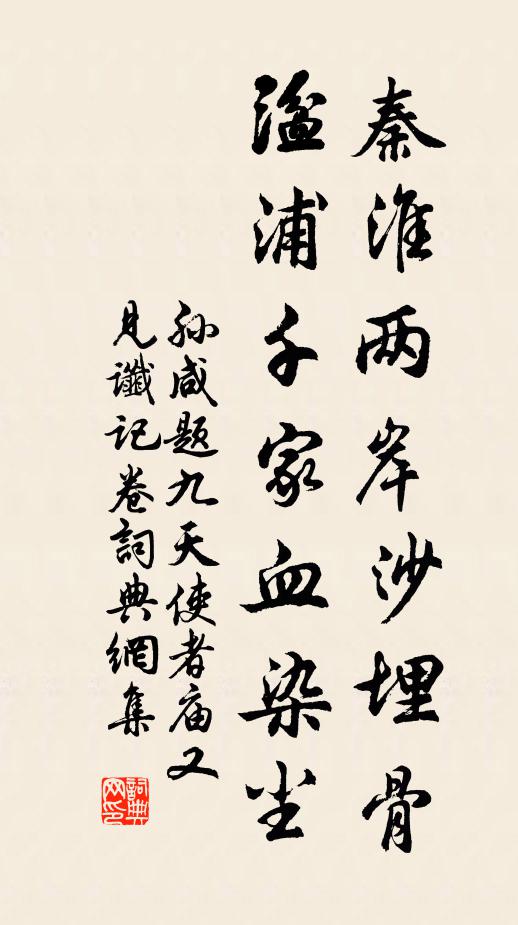 秦淮两岸沙埋骨
湓浦千家血染尘
孙咸题九天使者庙又
见谶记卷詞典網集
詞典网印